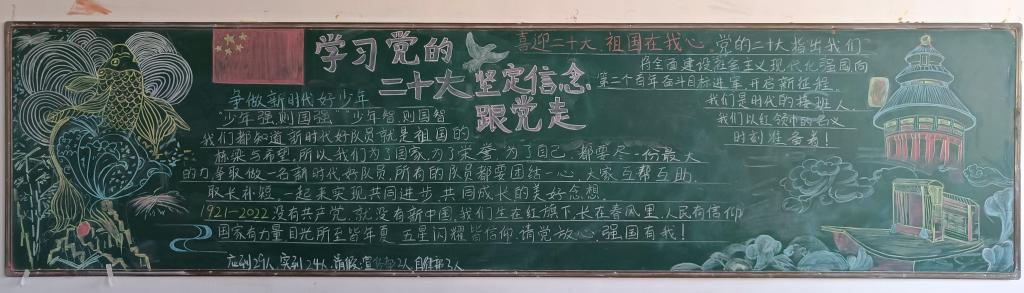 学习党的
二十大 坚定信念
跟党走
喜迎二十大，祖国在我心。党的二十大指出我们
将全面建设社会主义现代化强国，向
第二个百年奋斗目标进军，开启新征程。
我们是时代的接班人，
我们以红领巾的名义
时刻准备着！
争做新时代好少年
“少年强则国强”“少年智则国智
我们都知道新时代好队员就是祖国的
栋梁与希望，所以我们为了国家，为了荣誉，为了自己，都要尽一份最大
的力，争取做一名新时代好队员，所有的队员都要团结一心，大家互帮互助，
取长补短，一起来实现共同进步，共同成长的美好念想。
1921-2022没有共产党，就没有新中国，我们生在红旗下，长在春风里，人民有信仰
国家有力量，目光所至皆年夏，五星闪耀皆信仰，请党放心，强国有我！
应到29人，实到24人，请假：宣传部2人，自律部3人